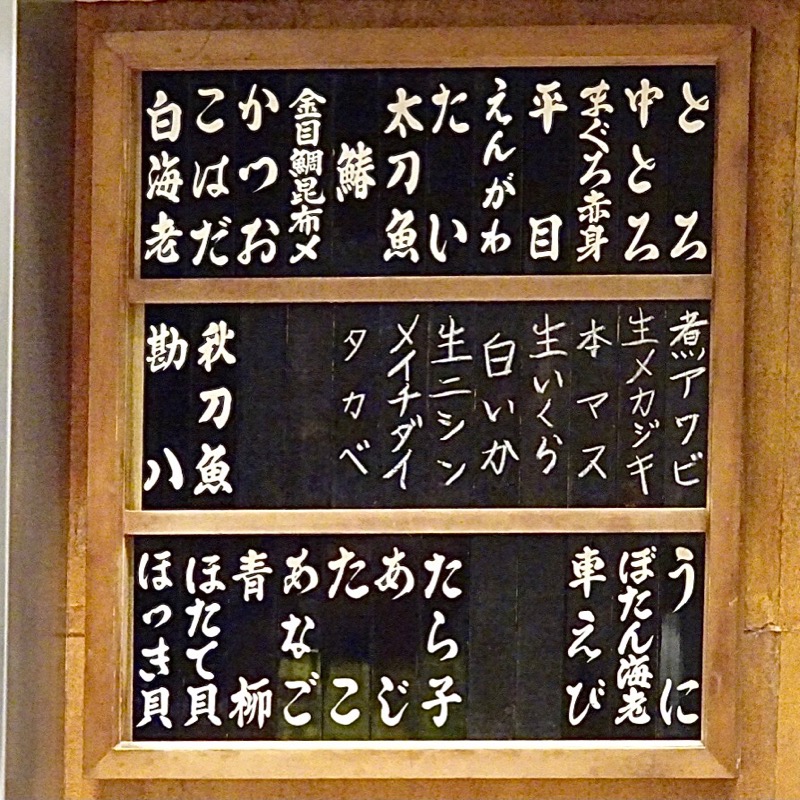 とろ
中とろ
まぐろ赤身
平目
えんがわ
たい
太刀魚
鰆
金目鯛昆布〆
かつお
こはだ
白海老
煮アワビ
生メカジキ
本マス
生いくら
白いか
生ニシン
メイチダイ
タカベ
秋刀魚
勘八
うに
ぼたん海老
車えび
たら子
あじ
たこ
あなご
青柳
ほたて貝
ほっき貝